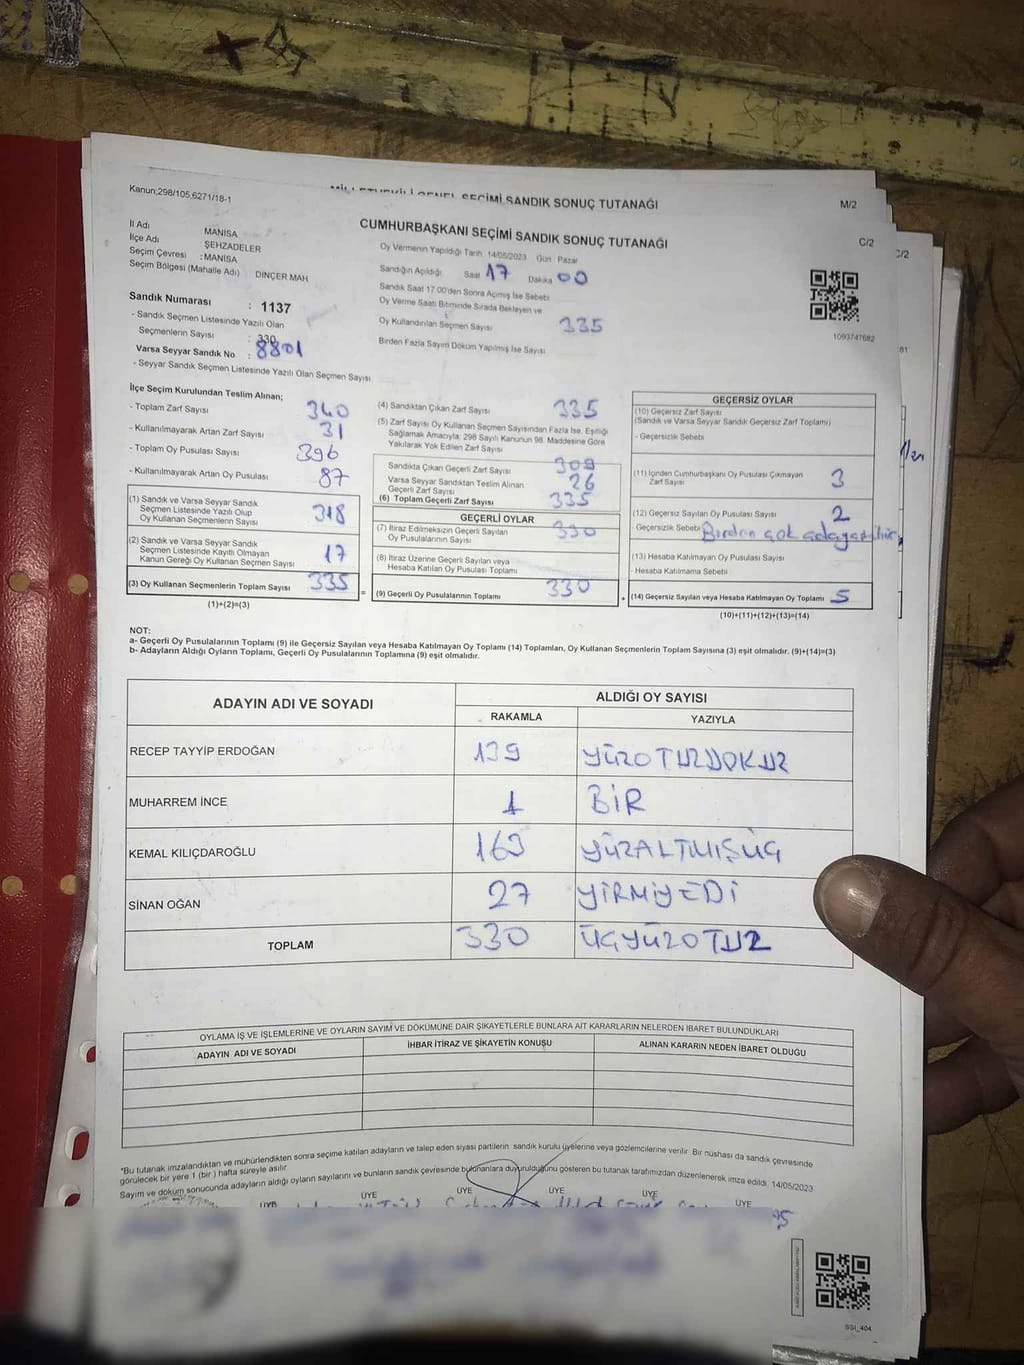 MİLLETVEKİLİ GENEL SEÇİMİ SANDIK SONUÇ TUTANAĞI
M/2
Kanun;298/105,6271/18-1
CUMHURBAŞKANI SEÇİMİ SANDIK SONUÇ TUTANAĞI
C/2
C/2
İl Adı MANİSA
İlçe Adı ŞEHZADELER
Seçim Çevresi : MANİSA
Seçim Bölgesi (Mahalle Adı) DİNÇER MAH
Sandık Numarası : 1137
- Sandık Seçmen Listesinde Yazılı Olan
Seçmenlerin Sayısı : 330
Varsa Seyyar Sandık No : 8801
- Seyyar Sandık Seçmen Listesinde Yazılı Olan Seçmen Sayısı
Oy Vermenin Yapıldığı Tarih :14/05/2023 Gün : Pazar
Sandığın Açıldığı Saat 17 Dakika 00
Sandık Saat 17 00'den Sonra Açmış İse Sebebi
Oy Verme Saati Bitiminde Sırada Bekleyen ve
Oy Kullandırılan Seçmen Sayısı 335
Birden Fazla Sayım Döküm Yapılmış İse Sayısı
1093747682
İlçe Seçim Kurulundan Teslim Alınan;
- Toplam Zarf Sayısı 340
- Kullanılmayarak Artan Zarf Sayısı 31
- Toplam Oy Pusulası Sayısı 396
- Kullanılmayarak Artan Oy Pusulası 87
(1) Sandık ve Varsa Seyyar Sandık
Seçmen Listesinde Yazılı Olup
Oy Kullanan Seçmenlerin Sayısı 318
(2) Sandık ve Varsa Seyyar Sandık
Seçmen Listesinde Kayıtlı Olmayan
Kanun Gereği Oy Kullanan Seçmen Sayısı 17
(3) Oy Kullanan Seçmenlerin Toplam Sayısı 335
(1)+(2)=(3)
(4) Sandıktan Çıkan Zarf Sayısı 335
(5) Zarf Sayısı Oy Kullanan Seçmen Sayısından Fazla İse, Eşitliği
Sağlamak Amacıyla; 298 Sayılı Kanunun 98. Maddesine Göre
Yakılarak Yok Edilen Zarf Sayısı
Sandıkta Çıkan Geçerli Zarf Sayısı 309
Varsa Seyyar Sandıktan Teslim Alınan
Geçerli Zarf Sayısı 26
(6) Toplam Geçerli Zarf Sayısı 335
GEÇERLİ OYLAR
(7) İtiraz Edilmeksizin Geçerli Sayılan
Oy Pusulalarının Sayısı 330
(8) İtiraz Üzerine Geçerli Sayılan veya
Hesaba Katılan Oy Pusulası Toplamı
= (9) Geçerli Oy Pusulalarının Toplamı 330
GEÇERSİZ OYLAR
(10) Geçersiz Zarf Sayısı
(Sandık ve Varsa Seyyar Sandık Geçersiz Zarf Toplamı)
- Geçersizlik Sebebi
(11) İçinden Cumhurbaşkanı Oy Pusulası Çıkmayan
Zarf Sayısı 3
(12) Geçersiz Sayılan Oy Pusulası Sayısı 2
- Geçersizlik Sebebi Birden çok adaya
(13) Hesaba Katılmayan Oy Pusulası Sayısı
- Hesaba Katılmama Sebebi
+ (14) Geçersiz Sayılan veya Hesaba Katılmayan Oy Toplamı 5
(10)+(11)+(12)+(13)=(14)
NOT:
a- Geçerli Oy Pusulalarının Toplamı (9) ile Geçersiz Sayılan veya Hesaba Katılmayan Oy Toplamı (14) Toplamları, Oy Kullanan Seçmenlerin Toplam Sayısına (3) eşit olmalıdır. (9)+(14)=(3)
b- Adayların Aldığı Oyların Toplamı, Geçerli Oy Pusulalarının Toplamına (9) eşit olmalıdır.
ADAYIN ADI VE SOYADI
ALDIĞI OY SAYISI
RAKAMLA YAZIYLA
RECEP TAYYİP ERDOĞAN 139 YÜZOTUZDOKUZ
MUHARREM İNCE 1 BİR
KEMAL KILIÇDAROĞLU 163 YÜZALTMIŞÜÇ
SİNAN OĞAN 27 YİRMİYEDİ
TOPLAM 330 ÜÇYÜZOTUZ
OYLAMA İŞ VE İŞLEMLERİNE VE OYLARIN SAYIM VE DÖKÜMÜNE DAİR ŞİKAYETLERLE BUNLARA AİT KARARLARIN NELERDEN İBARET BULUNDUKLARI
ADAYIN ADI VE SOYADI İHBAR İTİRAZ VE ŞİKAYETİN KONUSU ALINAN KARARIN NEDEN İBARET OLDUĞU
*Bu tutanak imzalandıktan ve mühürlendikten sonra seçime katılan adayların ve talep eden siyasi partilerin sandık kurulu üyelerine veya gözlemcilerine verilir. Bir nüshası da sandık çevresinde
görülecek bir yere 1 (bir) hafta süreyle asılır.
Sayım ve döküm sonucunda adayların aldığı oyların sayılarını ve bunların sandık çevresinde bulunanlara duyurulduğunu gösteren bu tutanak tarafımızdan düzenlenerek imza edildi. 14/05/2023
ÜYE ÜYE ÜYE ÜYE ÜYE ÜYE
SSI_404